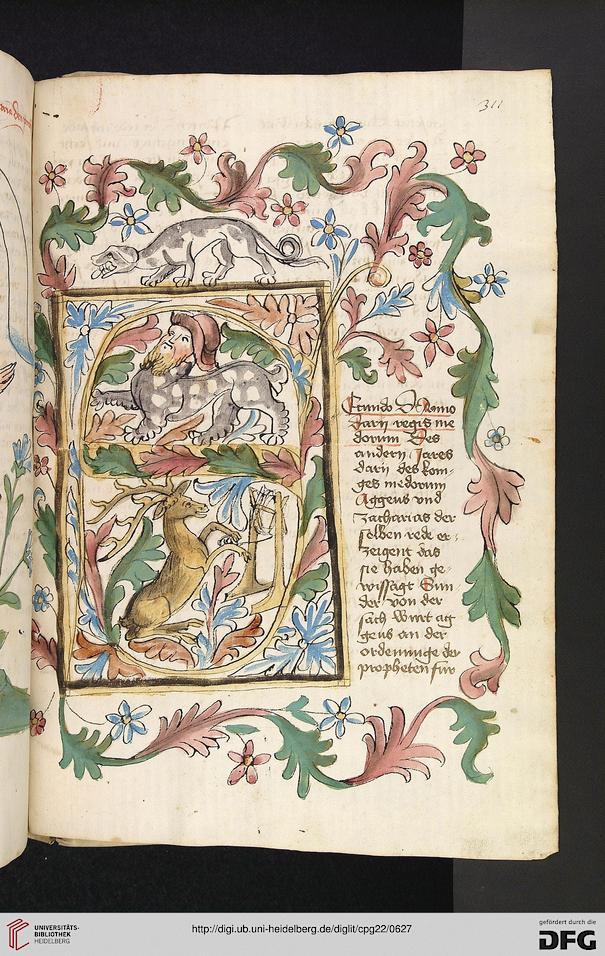 311
Ecundo Anno
darÿ regis me
dorum Des
andern Jares
darii des kom-
ges medorum
Aggeus vnd
zacharias der
selben rede er-
zeigent das
sie haben ge-
wissagt Sun-
der von der
sach wirt ag
geus an der
ordenunge der
propheten fur
UNIVERSITÄTS-
BIBLIOTHEK
HEIDELBERG
http://digi.ub.uni-heidelberg.de/diglit/cpg22/0627
gefördert durch die
DFG